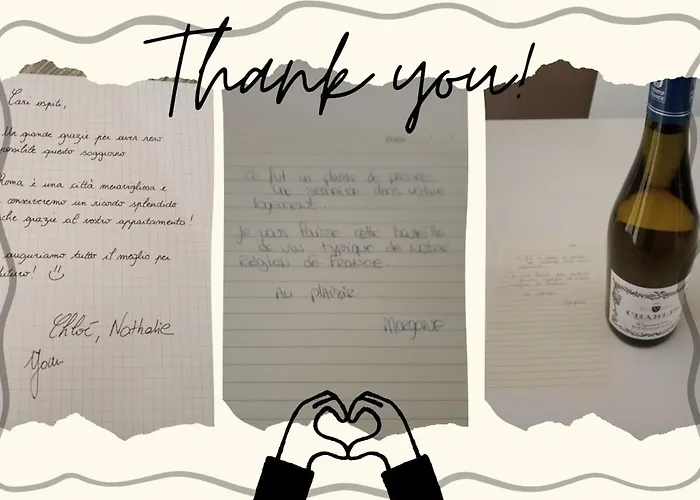 Thank you!
Cari ospiti,
Un grande grazie per aver reso
possibile questo soggiorno.
Roma è una città meravigliosa e
conserveremo un ricordo splendido
che grazie al vostro appartamento!
auguriamo tutto il meglio per
futuro!
Chloé, Nathalie
Yoan
Ce fut un plaisir de passer
une semaine dans votre
logement.
Je vous laisse cette bouteille
de vin typique de notre
Région de France.
Au plaisir.
Morgane
CHABLIS